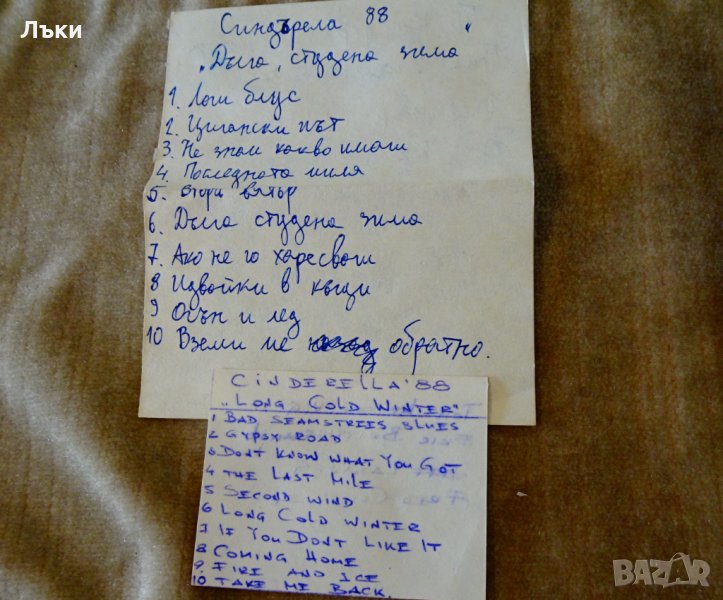 Лъки
Синдърела 88
„Дълга, студена зима“
1. Лош блус
2. Цигански път
3. Не знам какво имаш
4. Последната миля
5. Втори вятър
6. Дълга студена зима
7. Ако не го харесваш
8 Идвайки в къщи
9 Огън и лед
10 Вземи ме обратно.
CINDERELLA '88
„LONG COLD WINTER“
1 BAD SEAMSTRESS BLUES
2 GYPSY ROAD
3 DONT KNOW WHAT YOU GOT
4 THE LAST MILE
5 SECOND WIND
6 LONG COLD WINTER
7 IF YOU DONT LIKE IT
8 COMING HOME
9. FIRE AND ICE
10 TAKE ME BACK.
BAZAR